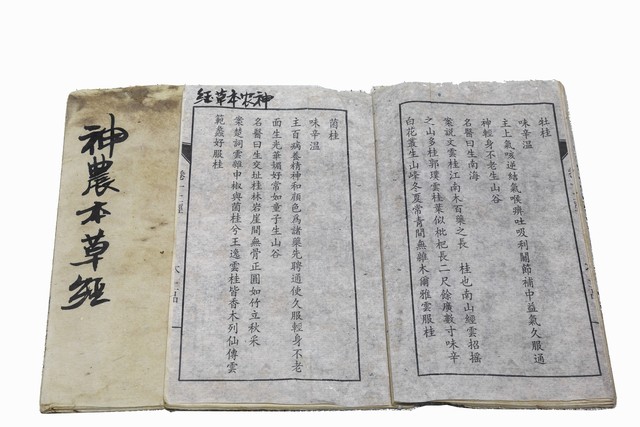 牡桂
味辛温
主上氣咳逆結氣喉痹吐吸利關節補中益氣久服通
神輕身不老生山谷
名醫曰生南海
案説文雲桂江南木百藥之長　桂也南山經雲招搖
之山多桂郭璞雲桂葉似枇杷長二尺餘廣數寸味辛
白花叢生山峰冬夏常青間無雜木爾雅雲服桂
神农本草経
菌桂
味辛温
主百病養精神和顏色爲諸藥先聘通使久服輕身不老
面生光華媚好常如童子生山谷
名醫曰生交址桂林岩崖間無骨正圓如竹立秋采
案楚詞雲雜申椒與菌桂兮王逸雲桂皆香木列仙傳雲
範蠡好服桂
神農本草經